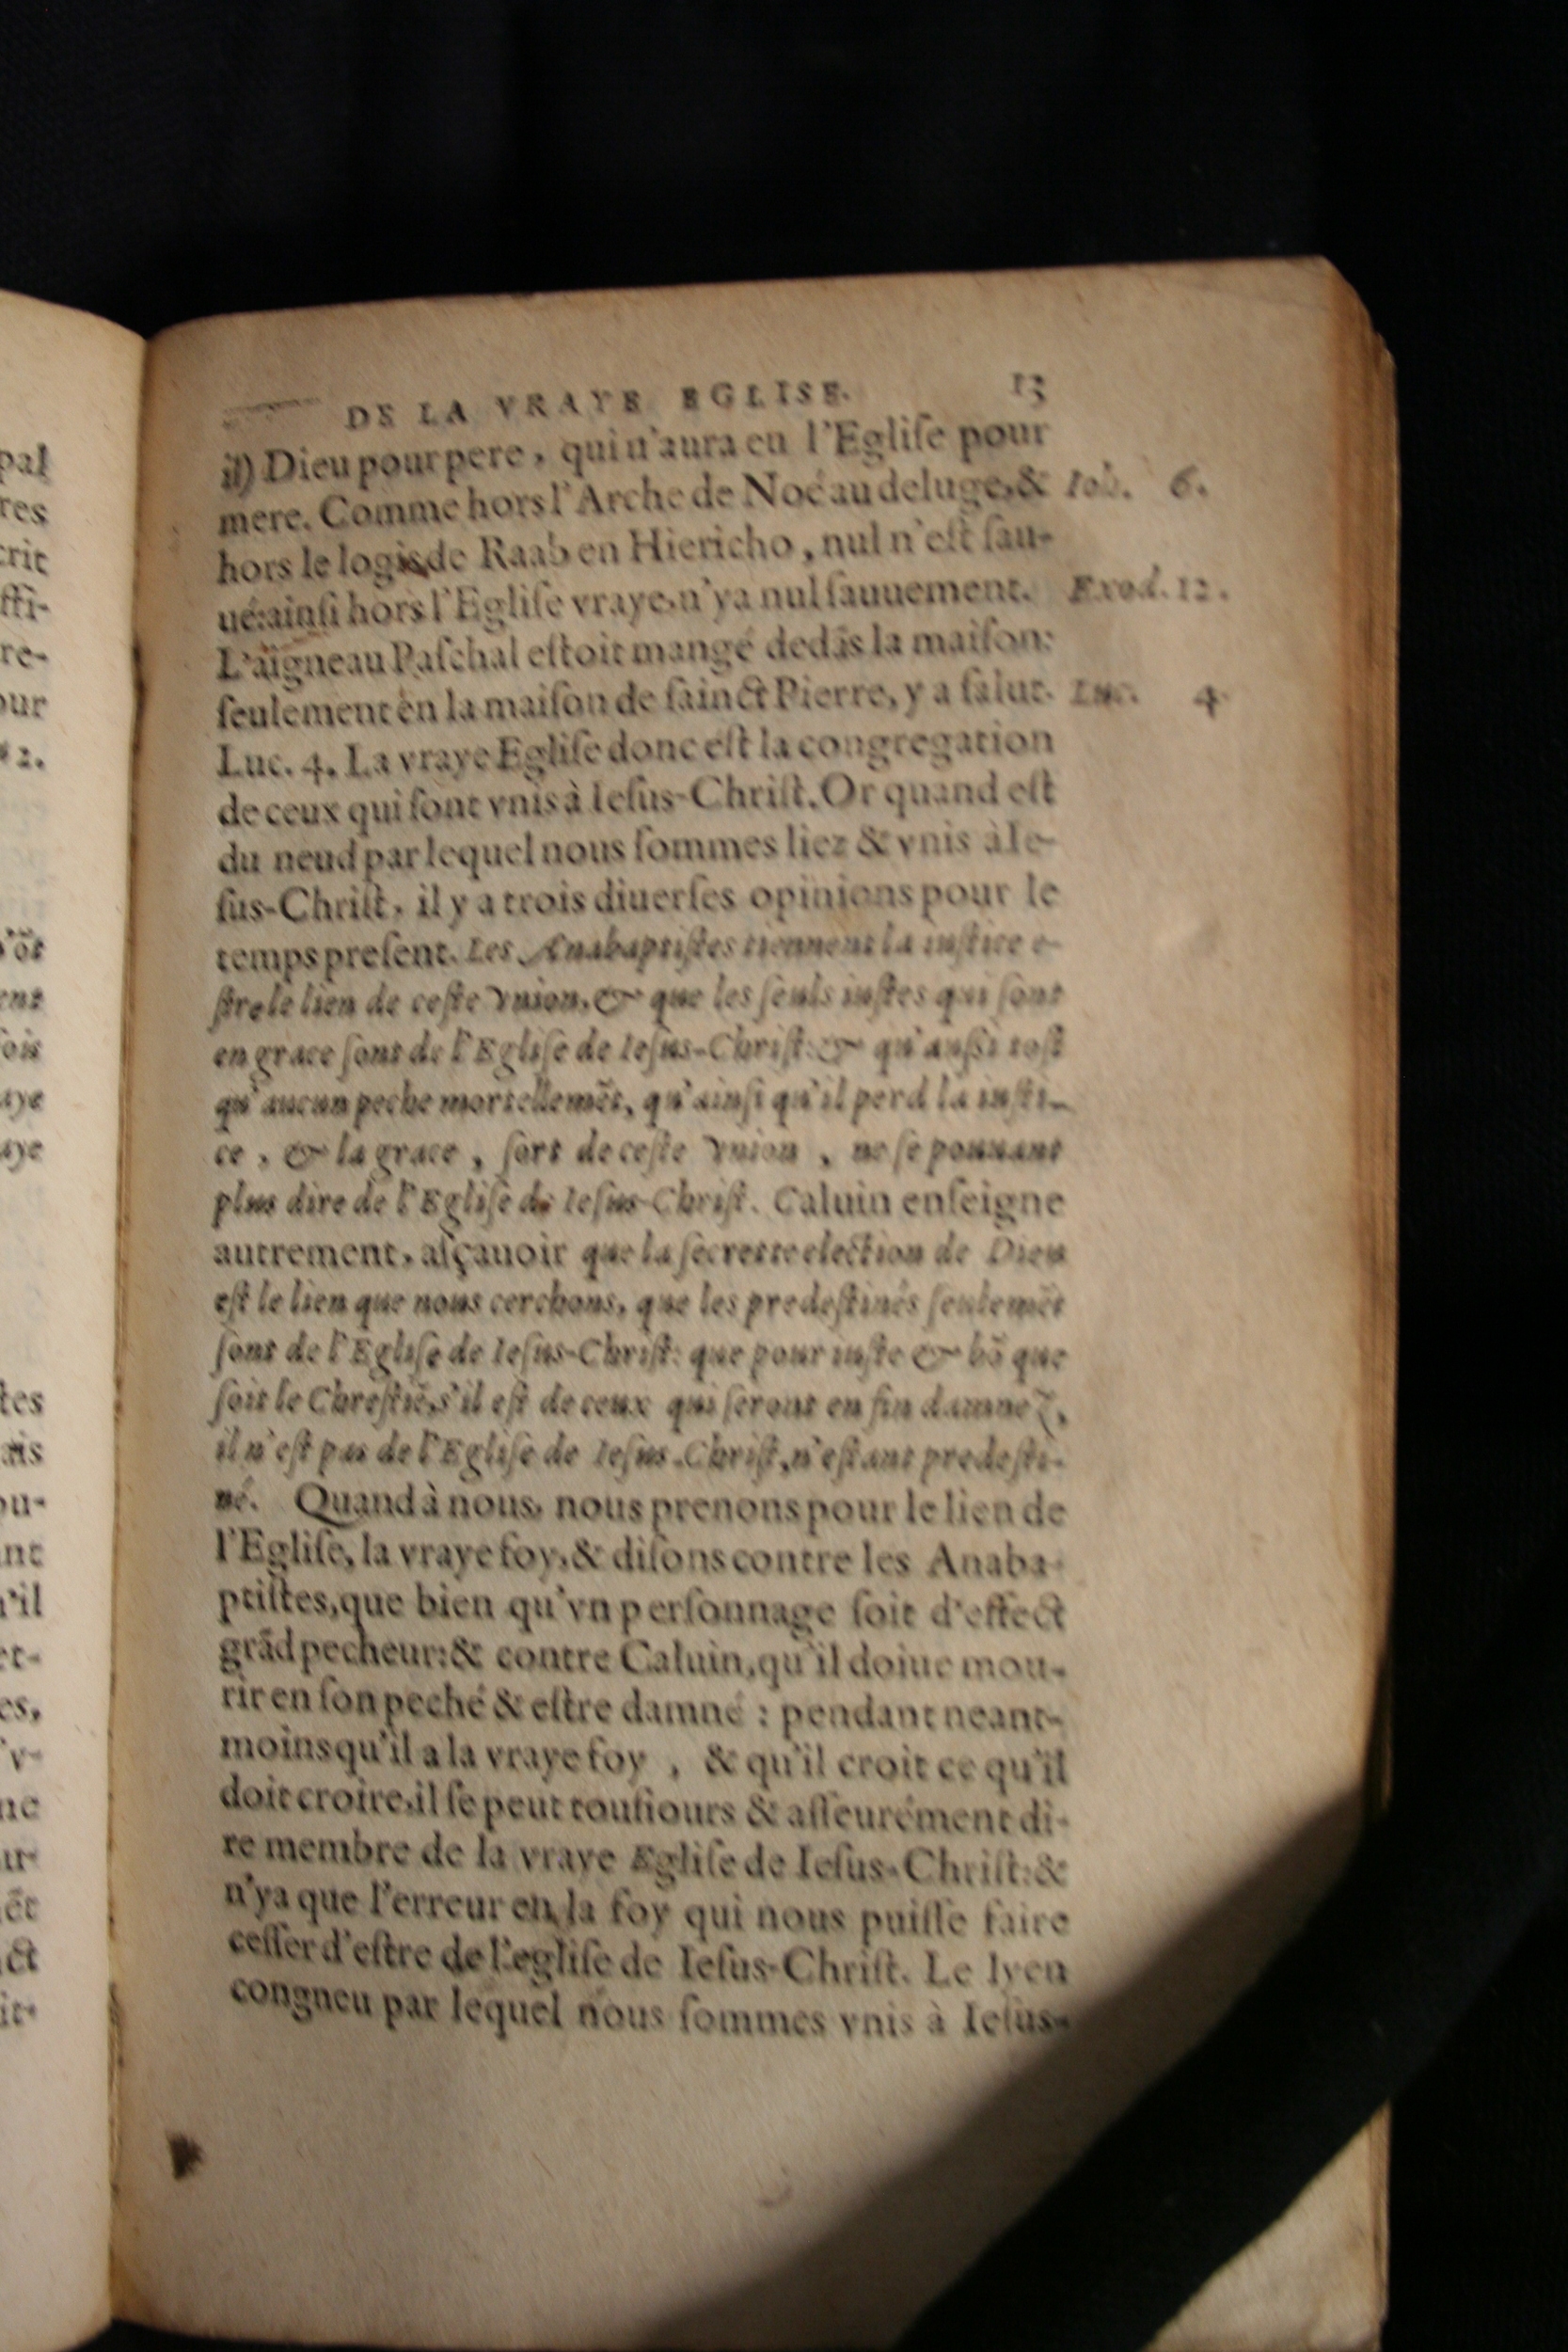 DE LA VRAYE EGLISE. 13
il) Dieu pour pere, qui n'aura eu l'Egliſe pour
mere. Comme hors l'Arche de Noé au deluge, &
Ioſ. 6.
hors le logis de Raab en Hiericho, nul n'eſt ſau-
ué: ainſi hors l'Egliſe vraye, n'ya nul ſauuement.
Exod. 12.
L'aigneau Paſchal eſtoit mangé dedãs la maiſon:
ſeulement en la maiſon de ſainct Pierre, y a ſalut.
Luc. 4
Luc. 4. La vraye Egliſe donc eſt la congregation
de ceux qui ſont vnis à Ieſus-Chriſt. Or quand eſt
du neud par lequel nous ſommes liez & vnis à Ie-
ſus-Chriſt, il y a trois diuerſes opinions pour le
temps preſent. Les Anabaptiſtes tiennent la iuſtice e-
ſtre le lien de ceſte vnion, & que les ſeuls iuſtes qui ſont
en grace ſont de l'Egliſe de Ieſus-Chriſt: & qu'auſsi toſt
qu'aucun peche mortellemẽt, qu'ainſi qu'il perd la iuſti-
ce, & la grace, ſort de ceſte vnion, ne ſe pouuant
plus dire de l'Egliſe de Ieſus-Chriſt. Caluin enſeigne
autrement, aſçauoir que la ſecrette election de Dieu
eſt le lien que nous cerchons, que les predeſtinés ſeulemẽt
ſont de l'Egliſe de Ieſus-Chriſt: que pour iuſte & bõ que
ſoit le Chreſtiẽ, s'il eſt de ceux qui ſeront en fin damnez,
il n'eſt pas de l'Egliſe de Ieſus-Chriſt, n'eſtant predeſti-
né. Quand à nous, nous prenons pour le lien de
l'Egliſe, la vraye foy, & diſons contre les Anaba-
ptiſtes, que bien qu'vn perſonnage ſoit d'effect
grãd pecheur: & contre Caluin, qu'il doiue mou-
rir en ſon peché & eſtre damné : pendant neant-
moins qu'il a la vraye foy , & qu'il croit ce qu'il
doit croire, il ſe peut touſiours & aſſeurément di-
re membre de la vraye Egliſe de Ieſus-Chriſt: &
n'ya que l'erreur en la foy qui nous puiſſe faire
ceſſer d'eſtre de l'egliſe de Ieſus-Chriſt. Le lyen
congneu par lequel nous ſommes vnis à Ieſus-